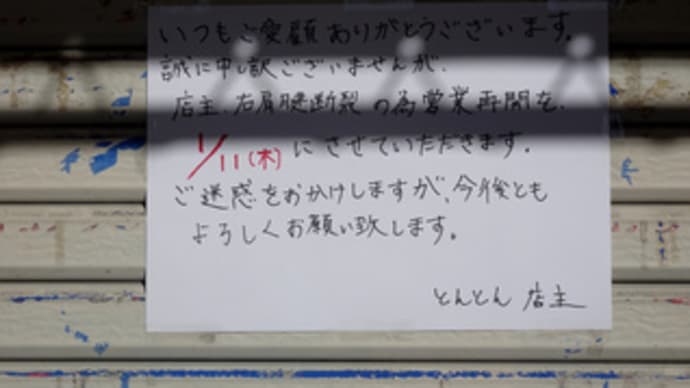 いつもご愛顧ありがとうございます。
誠に申し訳ございませんが、
店主、右肩腱断裂の為営業再開を、
1/11(木)にさせていただきます。
ご迷惑をおかけしますが、今後とも
よろしくお願い致します。
とんとん 店主